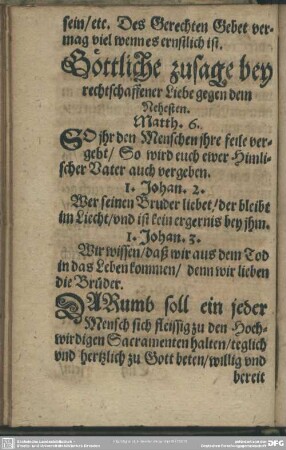 sein/etc. Des Gerechten Gebet ver-
mag viel wenn es ernstlich ist.
Göttliche zusage bey
rechtschaffener Liebe gegen dem
Nehesten.
Matth. 6.
SO jhr den Menschen jhre feile ver-
gebt/ So wird euch ewer Himli-
scher Vater auch vergeben.
1. Johan. 2.
Wer seinen Bruder liebet/der bleibt
im Liecht/vnd ist kein ergernis bey jhm.
1. Johan. 3.
Wir wissen/daß wir aus dem Tod
in das Leben kommen/ denn wir lieben
die Brüder.
DARumb soll ein jeder
Mensch sich fleissig zu den Hoch-
wirdigen Sacramenten halten/teglich
vnd hertzlich zu Gott beten/willig vnd
bereit
DFG